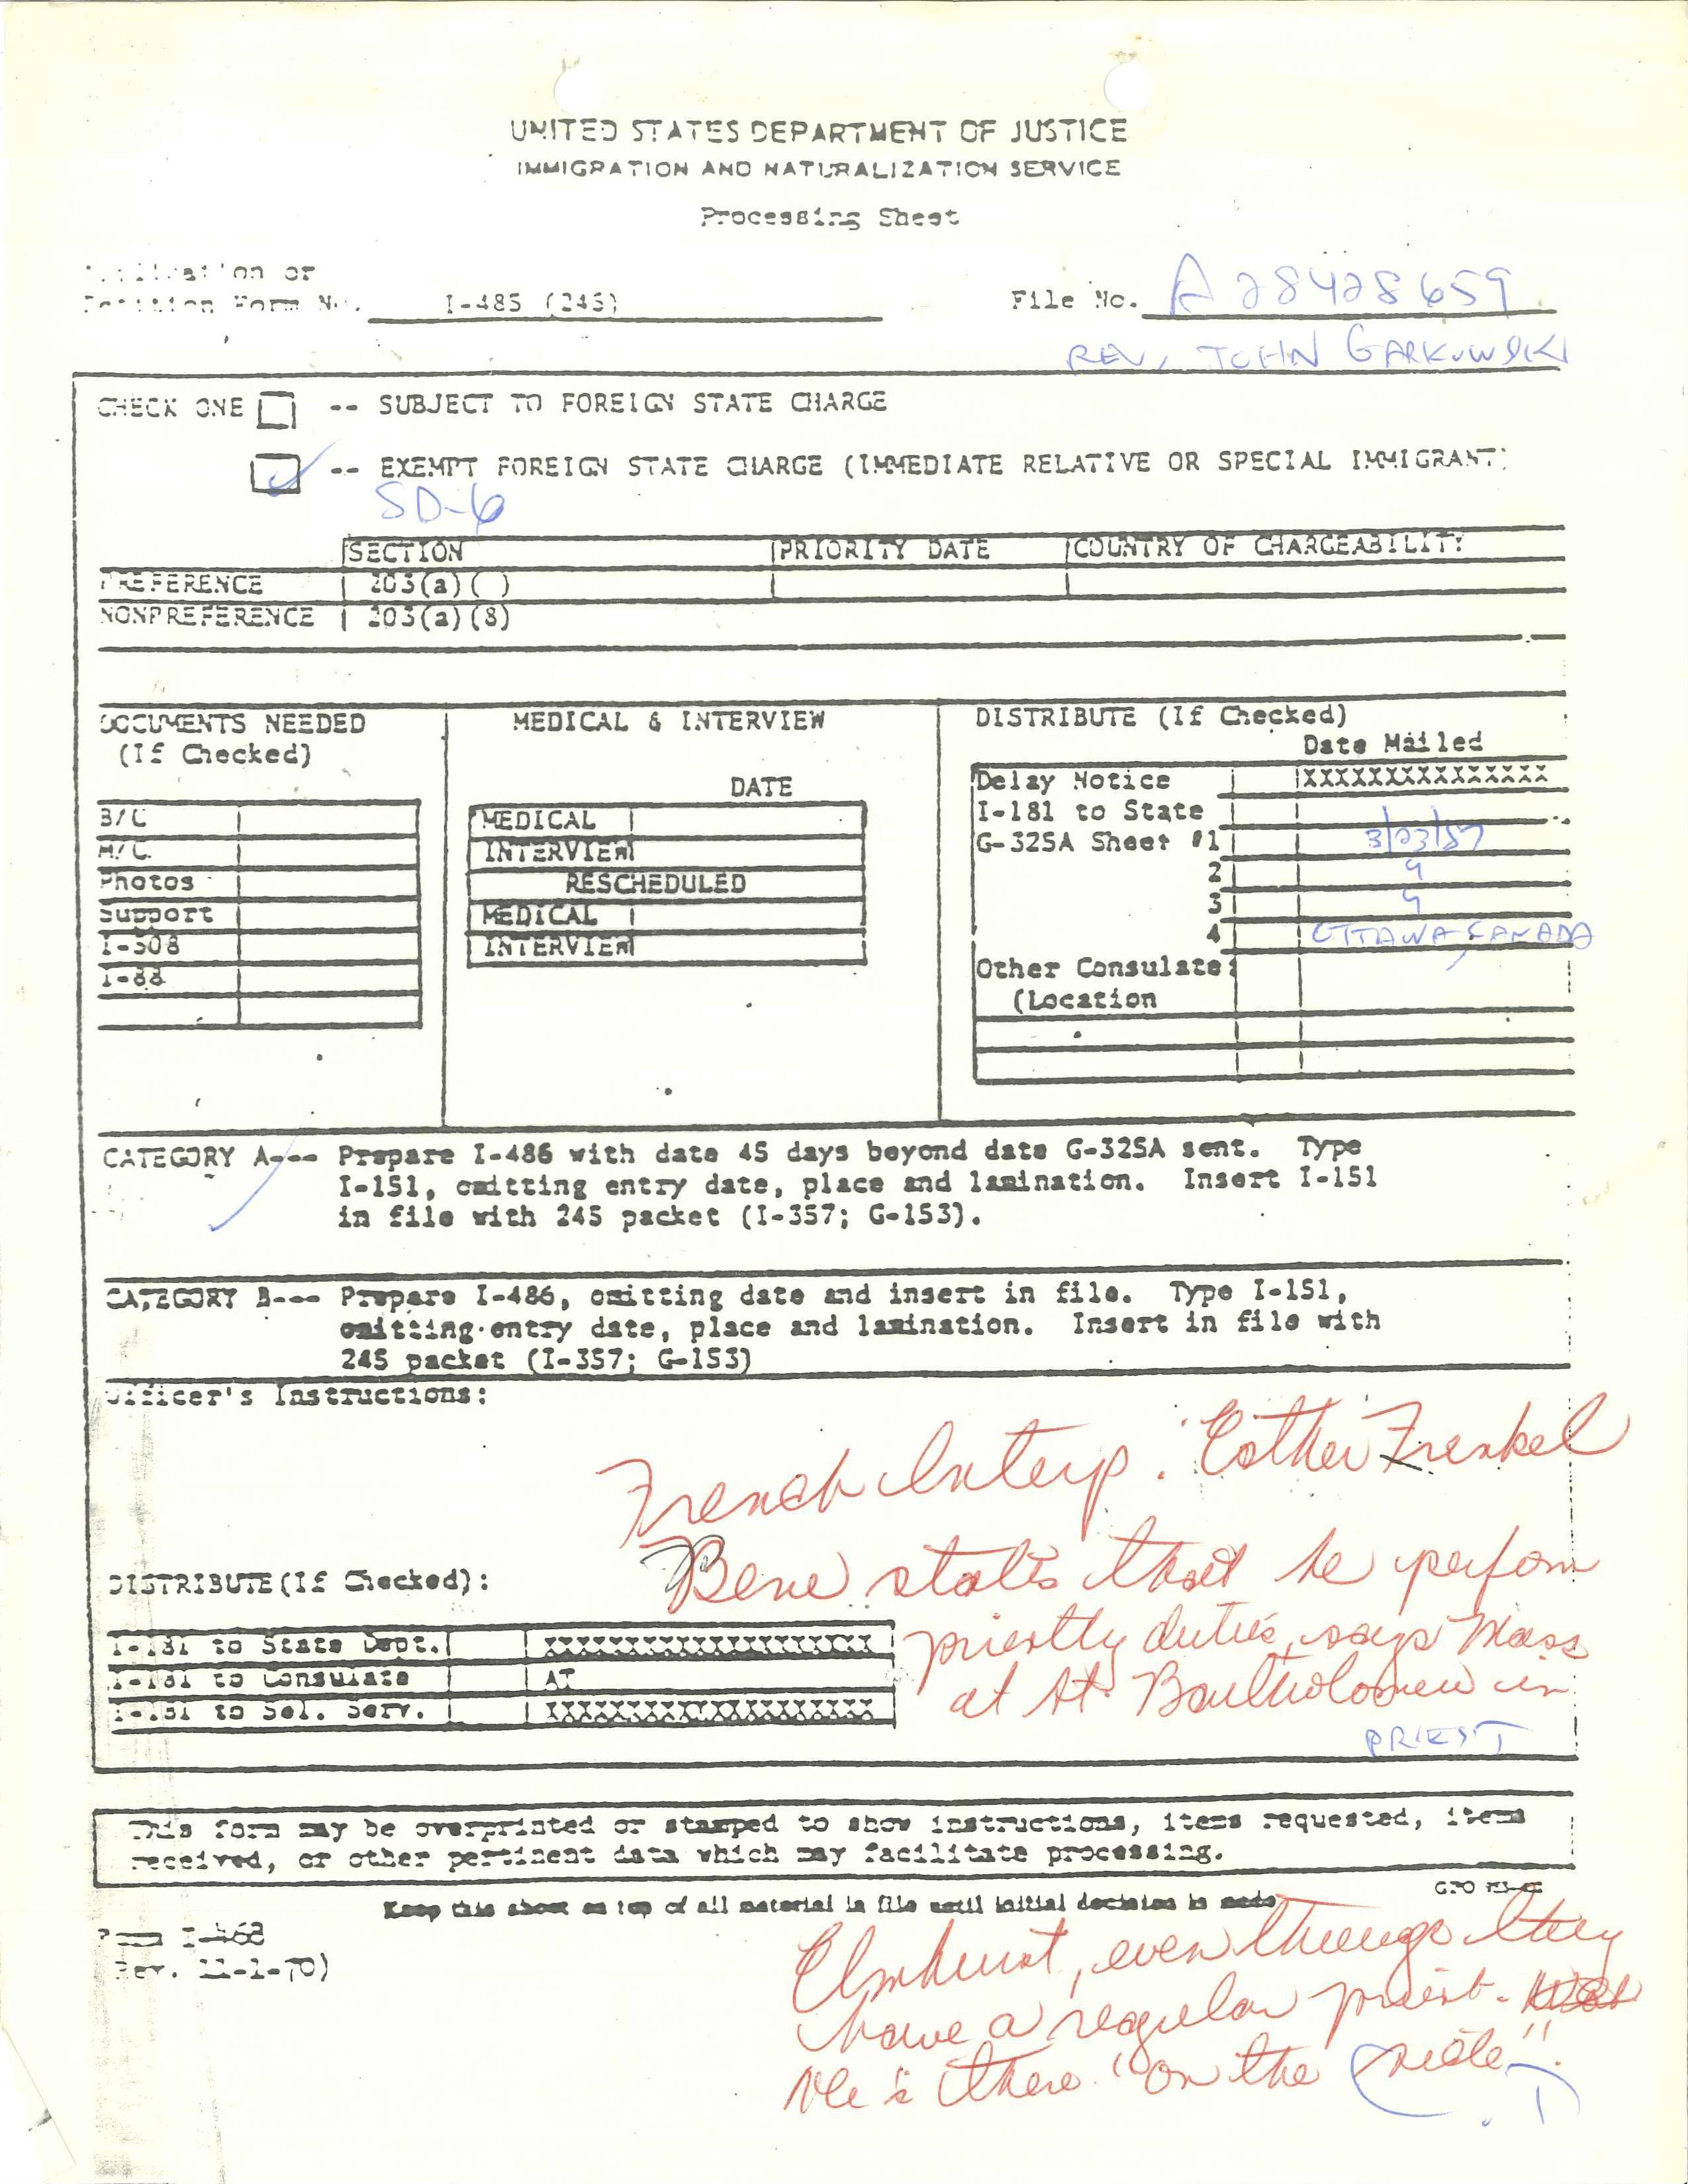 UNITED STATES DEPARTMENT OF JUSTICE
IMMIGRATION AND NATURALIZATION SERVICE
Processing Sheet
Application or
Petition Form No. I-485 (245)
File No. A28428659
REV. JOHN GARKOWSKI
CHECK ONE -- SUBJECT TO FOREIGN STATE CHARGE
-- EXEMPT FOREIGN STATE CHARGE (IMMEDIATE RELATIVE OR SPECIAL IMMIGRANT)
SD-6
SECTION PRIORITY DATE COUNTRY OF CHARGEABILITY
PREFERENCE 203(a)( )
NONPREFERENCE 203(a)(8)
DOCUMENTS NEEDED
(If Checked)
B/C
M/C
Photos
Support
I-508
I-88
MEDICAL & INTERVIEW
DATE
MEDICAL
INTERVIEW
RESCHEDULED
MEDICAL
INTERVIEW
DISTRIBUTE (If Checked)
Date Mailed
Delay Notice XXXXXXXXXXXXXXXX
I-181 to State
G-325A Sheet #1 3/23/87
2 "
3 "
4 OTTAWA, CANADA
Other Consulate:
(Location
CATEGORY A--- Prepare I-486 with date 45 days beyond date G-325A sent. Type
I-151, omitting entry date, place and lamination. Insert I-151
in file with 245 packet (I-357; G-153).
CATEGORY B--- Prepare I-486, omitting date and insert in file. Type I-151,
omitting entry date, place and lamination. Insert in file with
245 packet (I-357; G-153)
Officer's Instructions:
French Interp: Esther Frenkel
Bene states that he perfom
priestly duties, says Mass
at St. Bartholomew in
PRIEST
DISTRIBUTE(If Checked):
I-181 to State Dept. XXXXXXXXXXXXXXXXXXXX
I-181 to Consulate AT
I-181 to Sel. Serv. XXXXXXXXXXXXXXXXXXXX
This form may be overprinted or stamped to show instructions, items requested, items
received, or other pertinent data which may facilitate processing.
Keep this sheet on top of all material in file until initial decision is made
GPO
Form I-468
(Rev. 11-1-70)
Elmhurst, even though they
have a regular priest.
He's there "on the side".